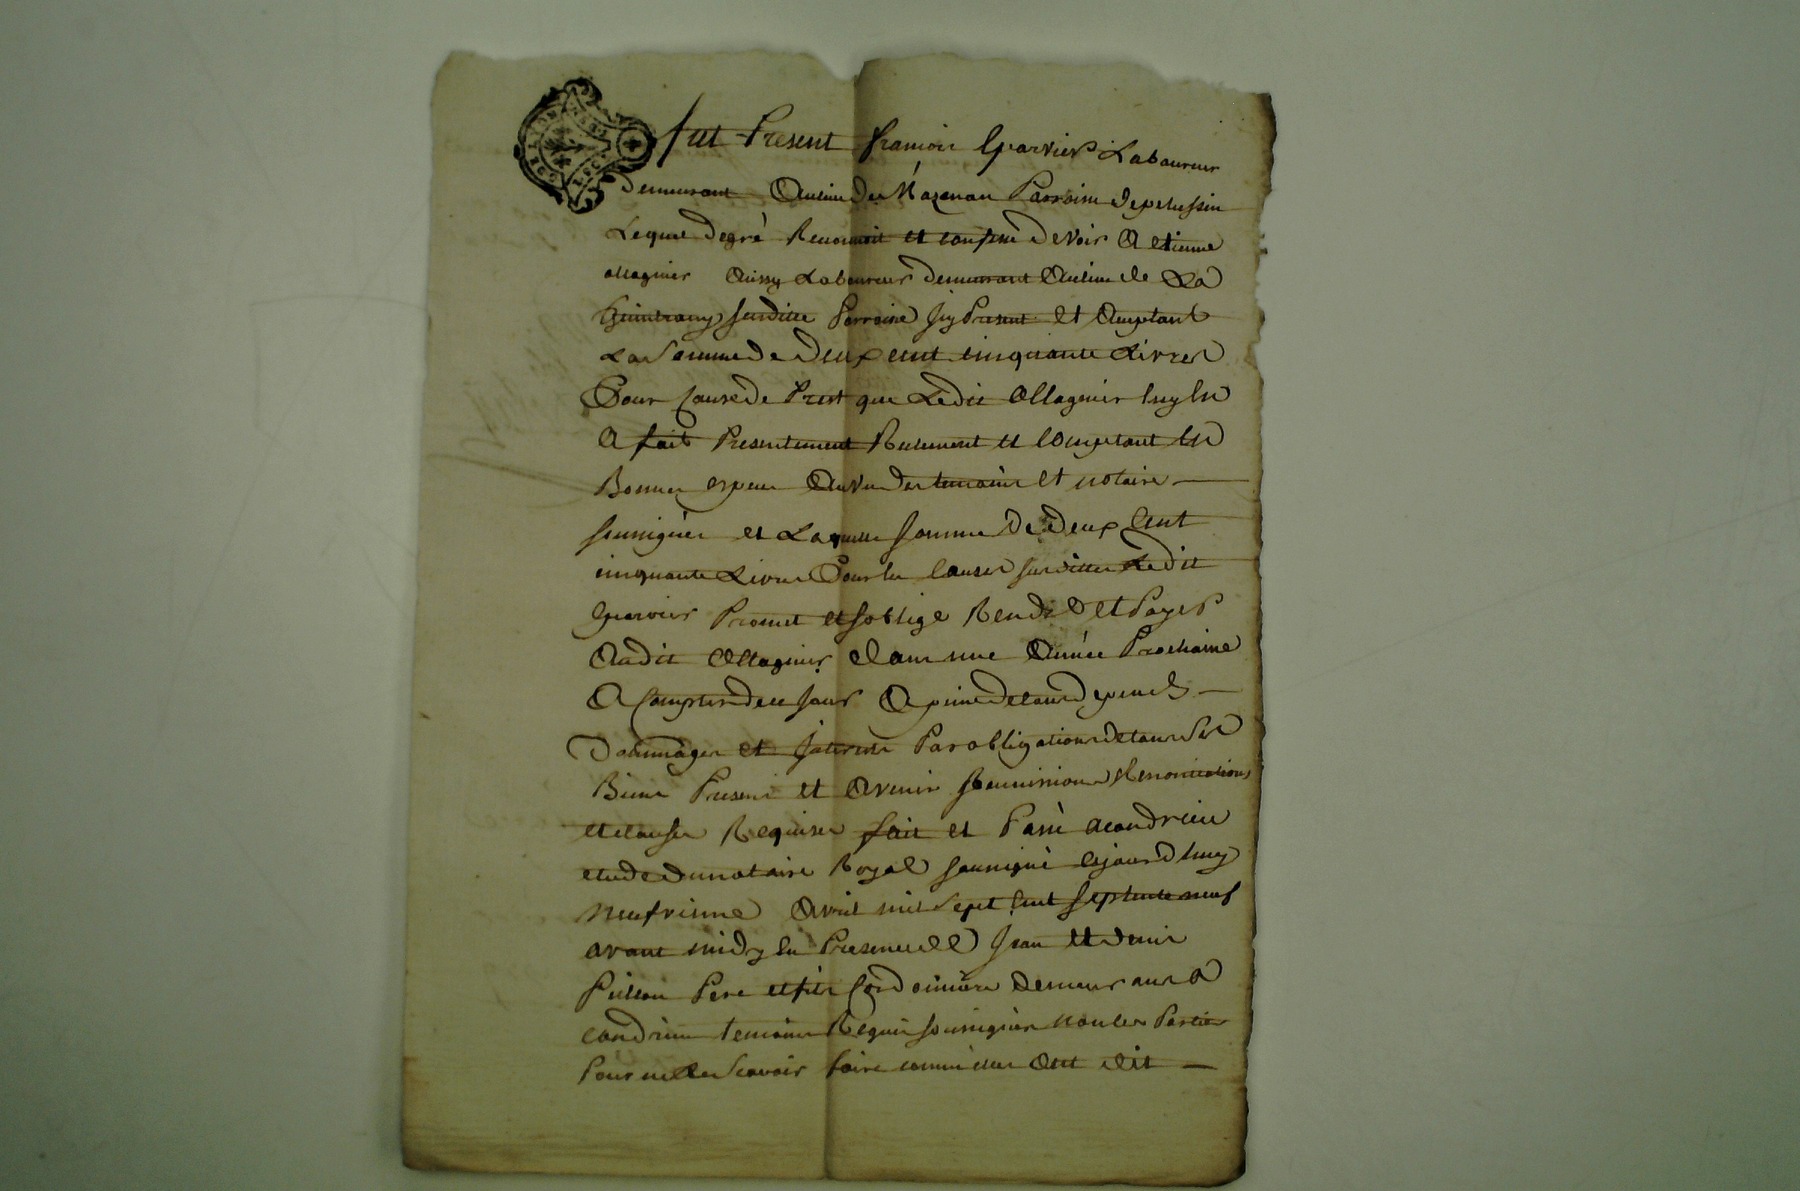 fut Present francois Lervier Laboureur
demeurant Aulieu de Mazenau Parroisse depelussin
Lequel degré Reconnoit et confesse devoir A etienne
allagnier Aussy Laboureur demeurant Aulieu de La
susditte Parroisse Icy Present et Aceptant
La Somme de deux cent cinquante Livres
Pour Cause de Prest que Ledit Allagnier luy En
A fait Presentement Reelement et Comptant En
Bonnes especes Au vu des temoins et notaire
soussignés et Laquelle somme de deux Cent
cinquante Livres Pour les Causes susdittes Ledit
Promet et soblige Rendre et Payer
Audit Allagnier dans une Année Prochaine
A Compter dece jour A peine detous depends
Dommages et Interests Par obligation detous Ses
Biens Presens et Avenir soumissions Renonciations
et clauses Requises fait et Passé acondrieu
etude dunotaire Royal soussigné cejourdhuy
neufvieme Avril mil Sept Cent Septante neuf
avant midy En Presence de Jean et denis
Pere et fils Cordonniers demeurans A
condrieu temoins Requis soussignés non les Parties
Pour ne Le Scavoir faire comme elles Ont dit